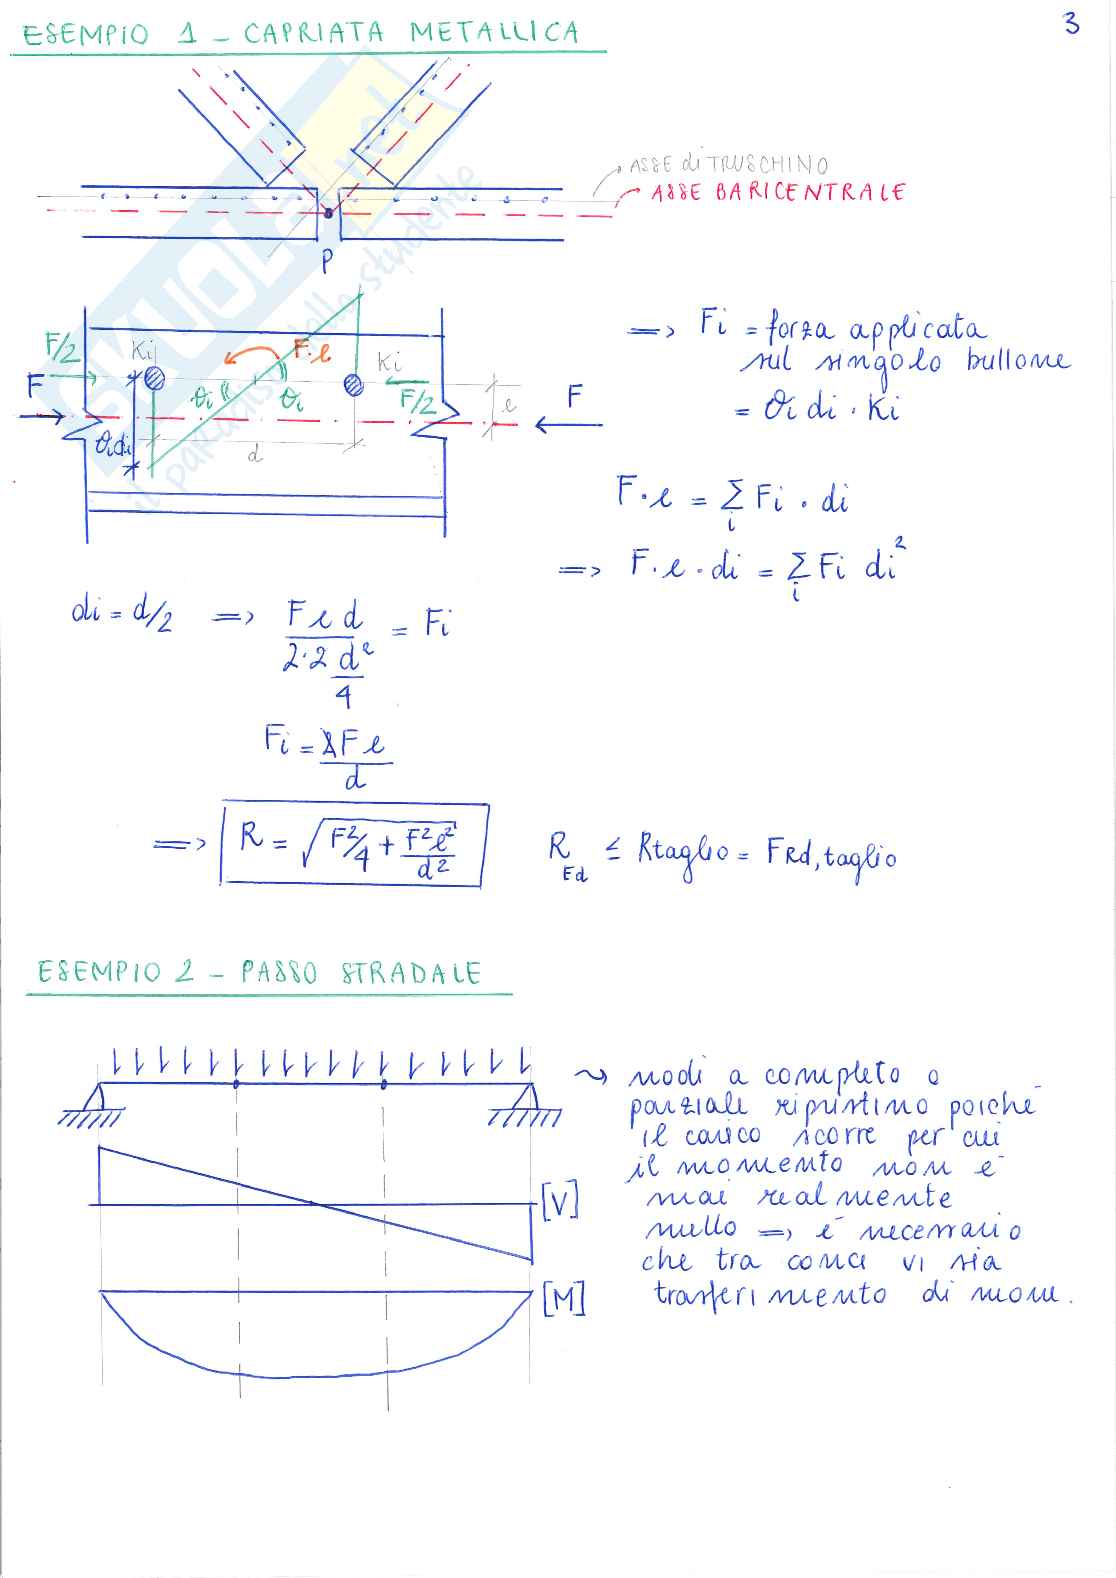 ESEMPIO 1 - CAPRIATA METALLICA
3
ASSE di TRUSCHINO
ASSE BARICENTRALE
P
SKUOLA.net
il paradiso dello studente
F/2
Ki
F·e
Ki
F
θi
θi
F/2
e
F
θidi
d
=> Fi = forza applicata
sul singolo bullone
= θi di · Ki
F·e = Σ Fi · di
i
=> F·e·di = Σ Fi di²
i
di = d/2 => F e d / 2·2 d²/4 = Fi
Fi = 1Fe/d
=> R = √F²/4 + F²e²/d²
REd ≤ Rtaglio = FRd,taglio
ESEMPIO 2 - PASSO STRADALE
~> nodi a completo o
parziale ripristino poiché
il carico scorre per cui
il momento non è
mai realmente
nullo => è necessario
che tra conci vi sia
trasferimento di mom.
[V]
[M]